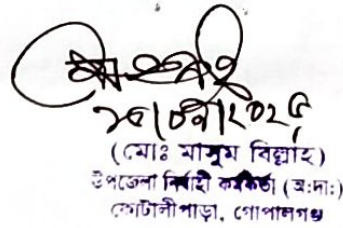 (মোঃ মাসুম বিল্লাহ)
উপজেলা নির্বাহী কর্মকর্তা (অ:দা:)
কোটালীপাড়া, গোপালগঞ্জ